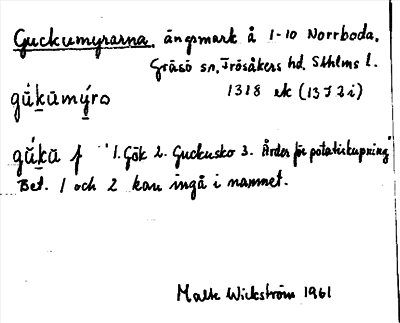 Guckumyrarna, ängsmark å 1-10 Norrboda,
Gräsö sn, Frösåkers hd, Sthlms l.
1318 ek (13 I 2 i)
gŭ́k̲ŭmý̲ro
gŭ́k̲ŭ f "1. Gök 2. Guckusko 3. Årder för potatiskupning"
Bet. 1 och 2 kan ingå i namnet.
Malte Wickström 1961